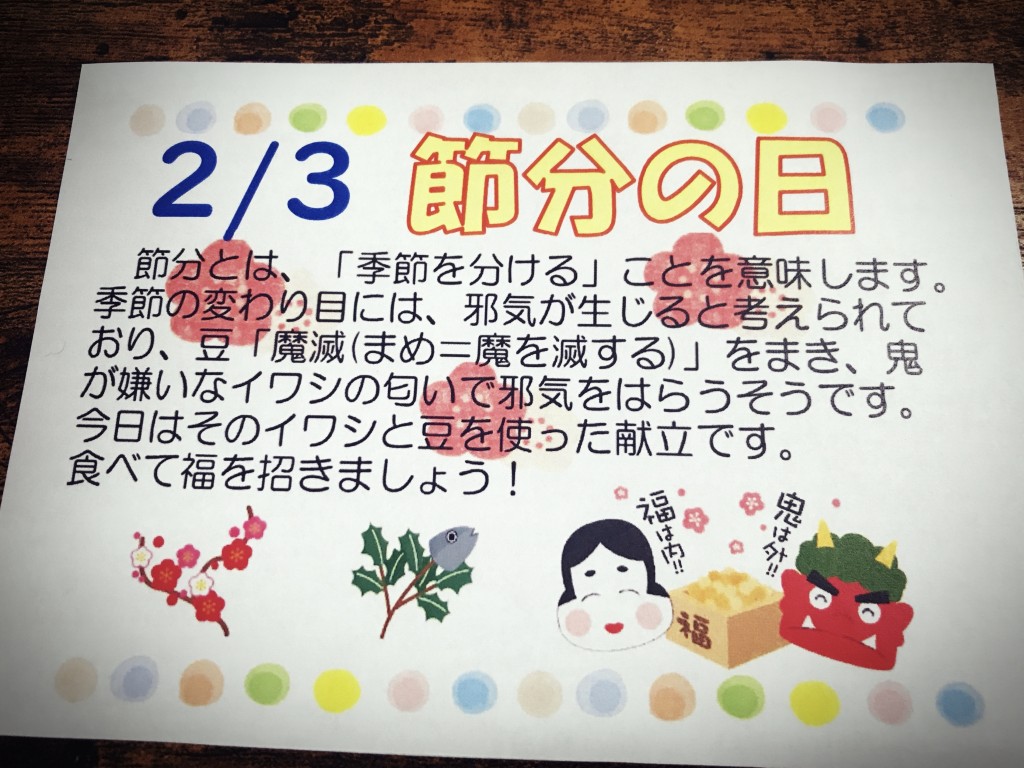 2/3 節分の日
節分とは、「季節を分ける」ことを意味します。
季節の変わり目には、邪気が生じると考えられて
おり、豆「魔滅(まめ＝魔を滅する)」をまき、鬼
が嫌いなイワシの匂いで邪気をはらうそうです。
今日はそのイワシと豆を使った献立です。
食べて福を招きましょう！
福は内!!
鬼は外!!
福